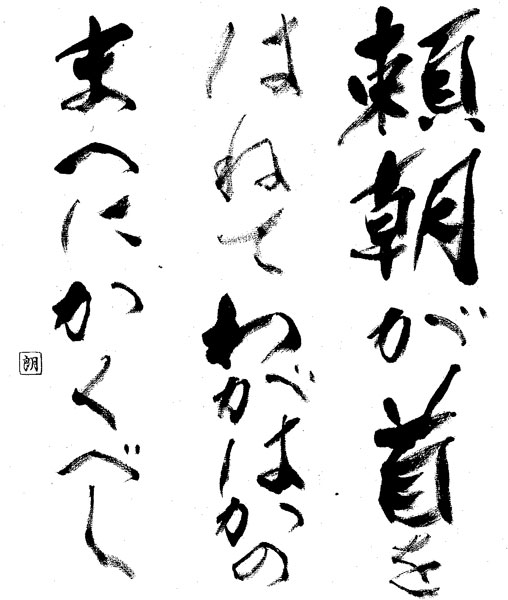 頼朝が首を
はねてわがはかの
まへにかくべし
朗